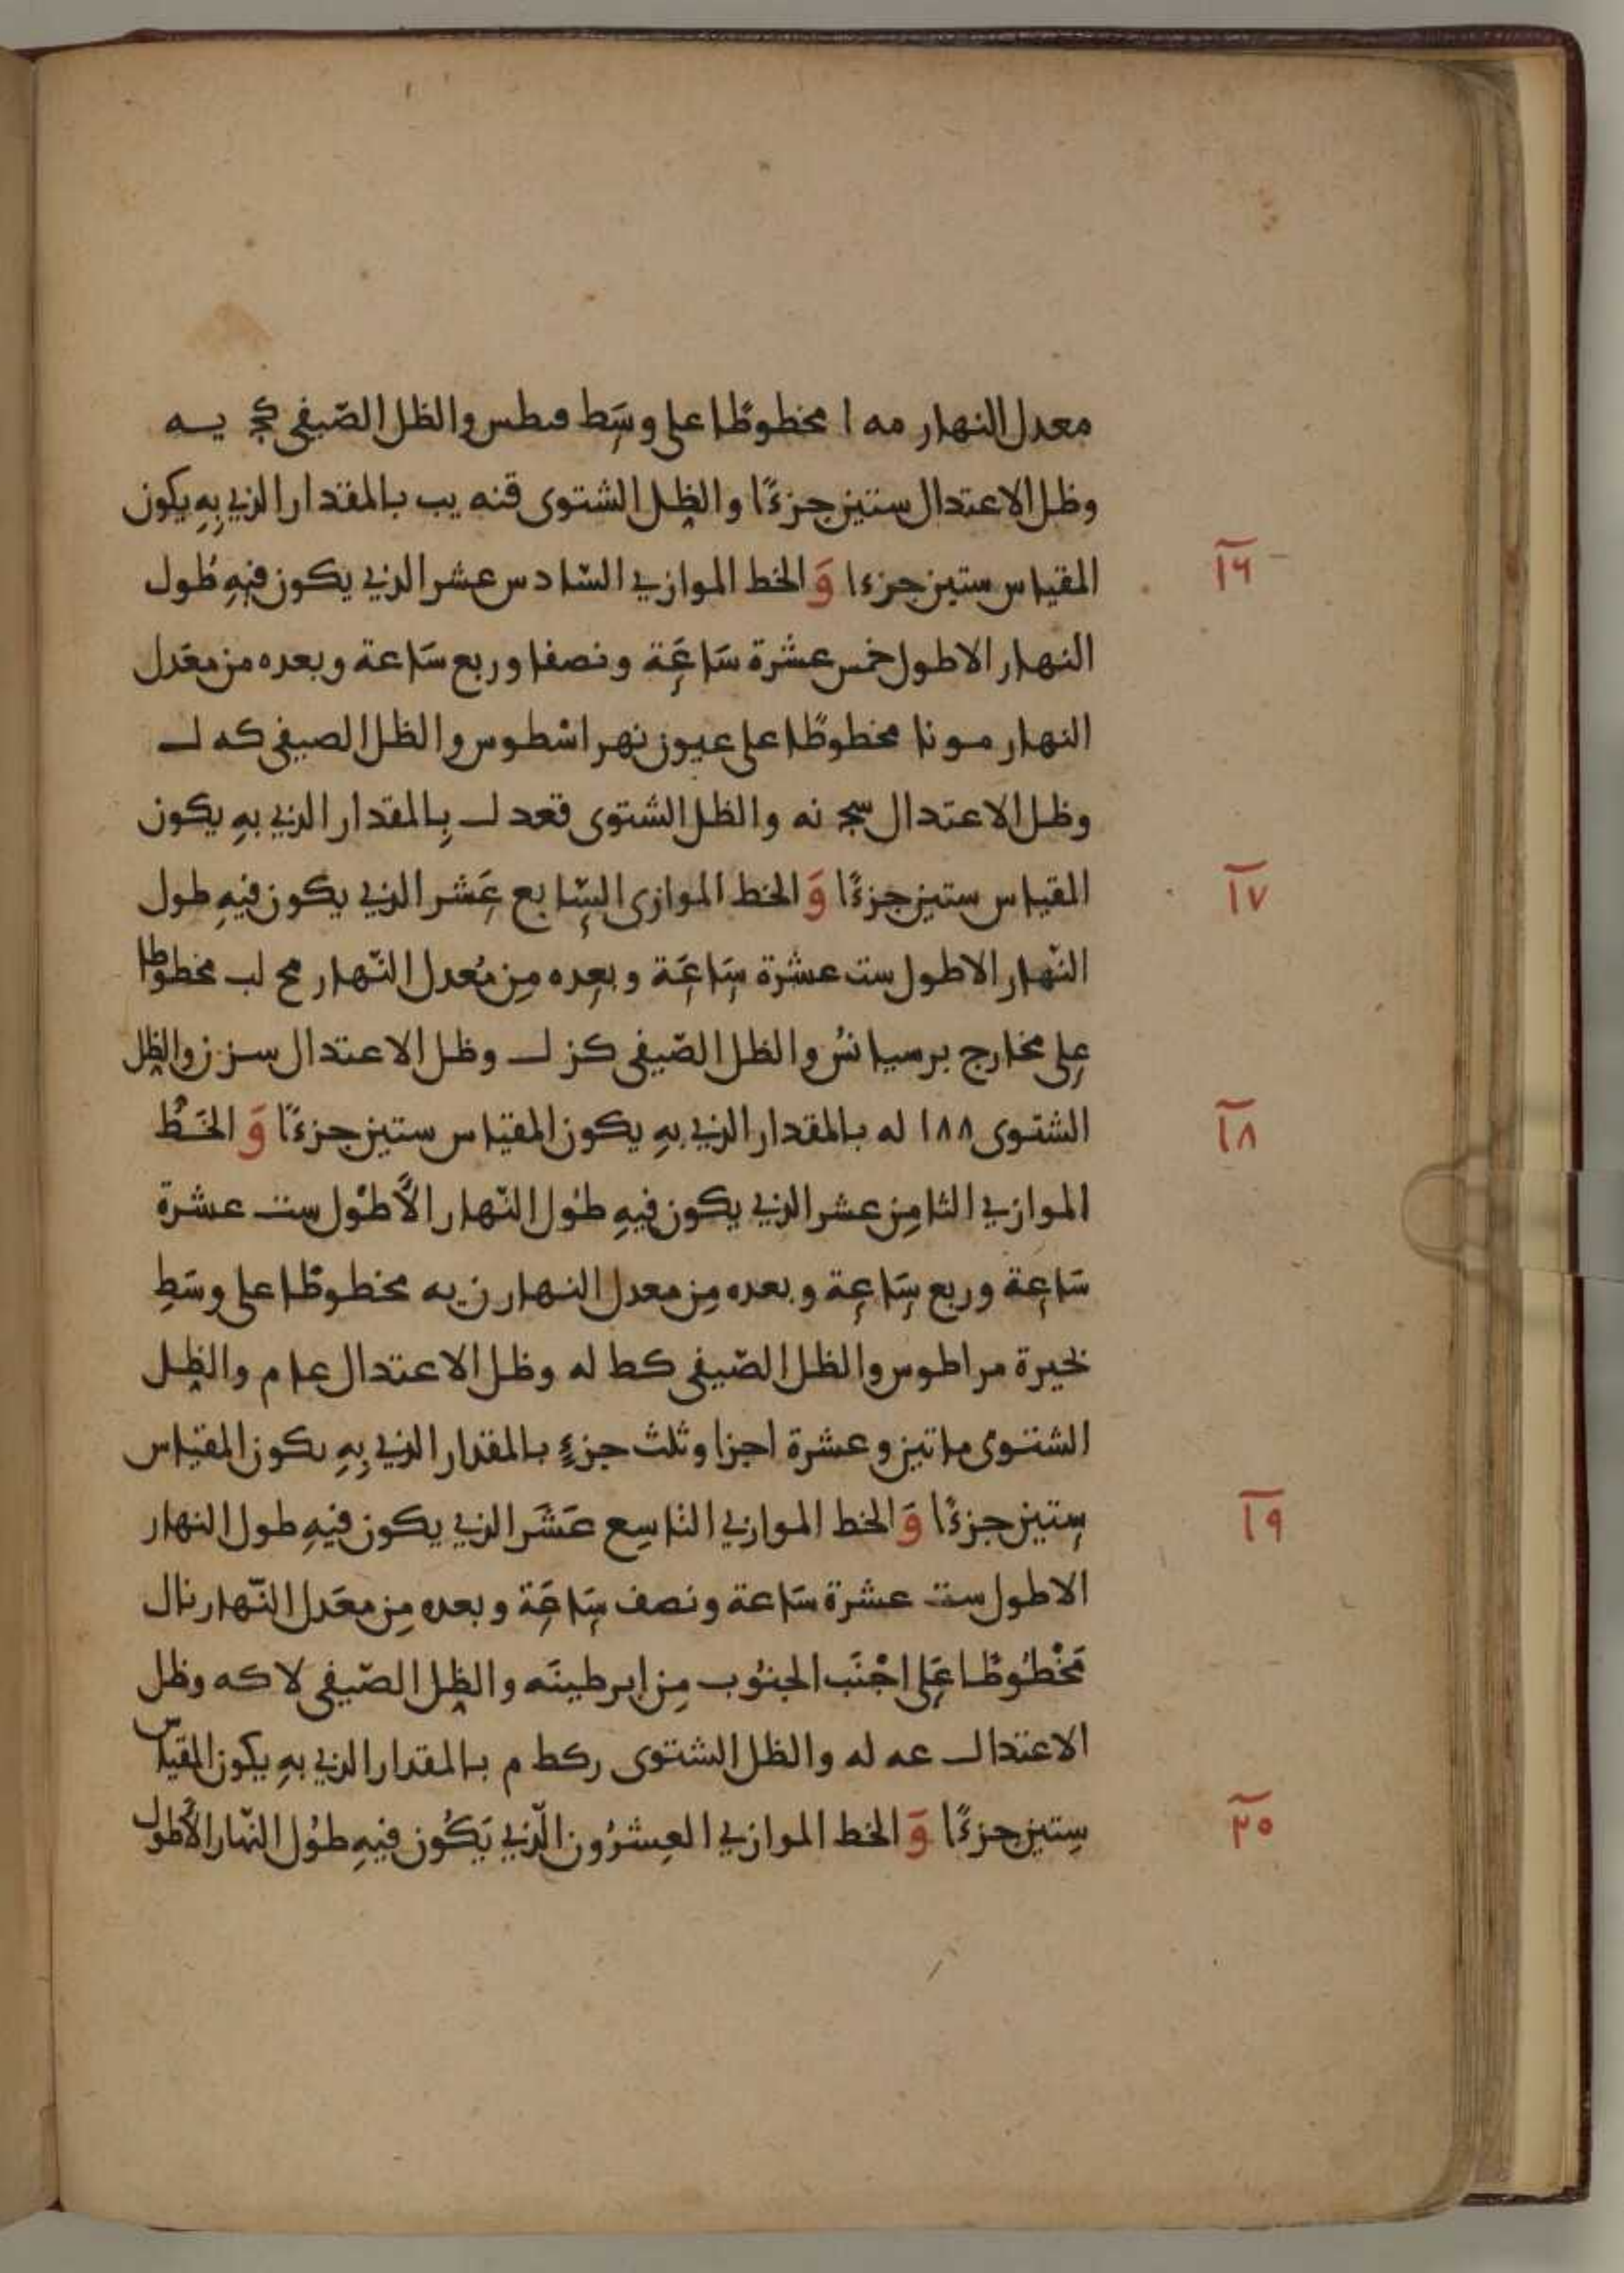 معدل النهار مه ا مخطوطا على وسط فطس والظل الصيفى كج يه
وظل الاعتدال ستين جزءًا والظل الشتوى قنه يب بالمقدار الذي به يكون
١٦
المقياس ستين جزءا وَ الخط الموازي السّادس عشر الذي يكون فيهِ طُول
النهار الاطول خمس عشرة سَاعَة ونصفا وربع سَاعة وبعده من معَدل
النهار مو نا مخطوطًا على عيون نهر اسْطوس والظل الصيفى كه ل
وظل الاعتدال سج نه والظل الشتوى قعد ل بِالمقدار الذي بهِ يكون
١٧
المقياس ستين جزءًا وَ الخط الموازى السّابع عَشر الذي يكون فيهِ طول
النّهار الاطول ست عشرة سَاعَة وبعده مِن مُعدل النّهار مح لب مخطوطا
على مخارج برسيانسُ والظل الصّيفى كز ل وظل الاعتدال سز ز والظل
١٨
الشتوى ١٨٨ له بالمقدار الذي بهِ يكون المقياس ستين جزءًا وَ الخَطُ
الموازي الثامِن عشر الذي يكون فيهِ طوُل النّهار الأطوْل ست عشرة
سَاعة وربع سَاعة وبعده مِن معدل النهار ن يه مخطوطًا على وسَطِ
نحيرة مراطوس والظل الصّيفى كط له وظل الاعتدال عا م والظل
الشتوى ماتين وعشرة اجزا وثلث جزءٍ بالمقدار الذي بِهِ يكون المقياس
١٩
ستين جزءًا وَ الخط الموازي التاسِع عَشَر الذي يكون فيهِ طول النهار
الاطول ست عشرة سَاعة ونصف سَاعَة وبعده مِن معَدل النّهار نا ل
مَخْطُوطًا عَلى اجْنَب الجنوُب مِن ابرطينَه والظل الصّيفى لا كه وظل
الاعتدال عه له والظل الشتوى ركط م بالمقدار الذي بهِ يكون المقياس
٢٠
ستين جزءًا وَ الخط الموازي العِشرُون الّذي يَكُون فيهِ طوُل النّهار الأطول